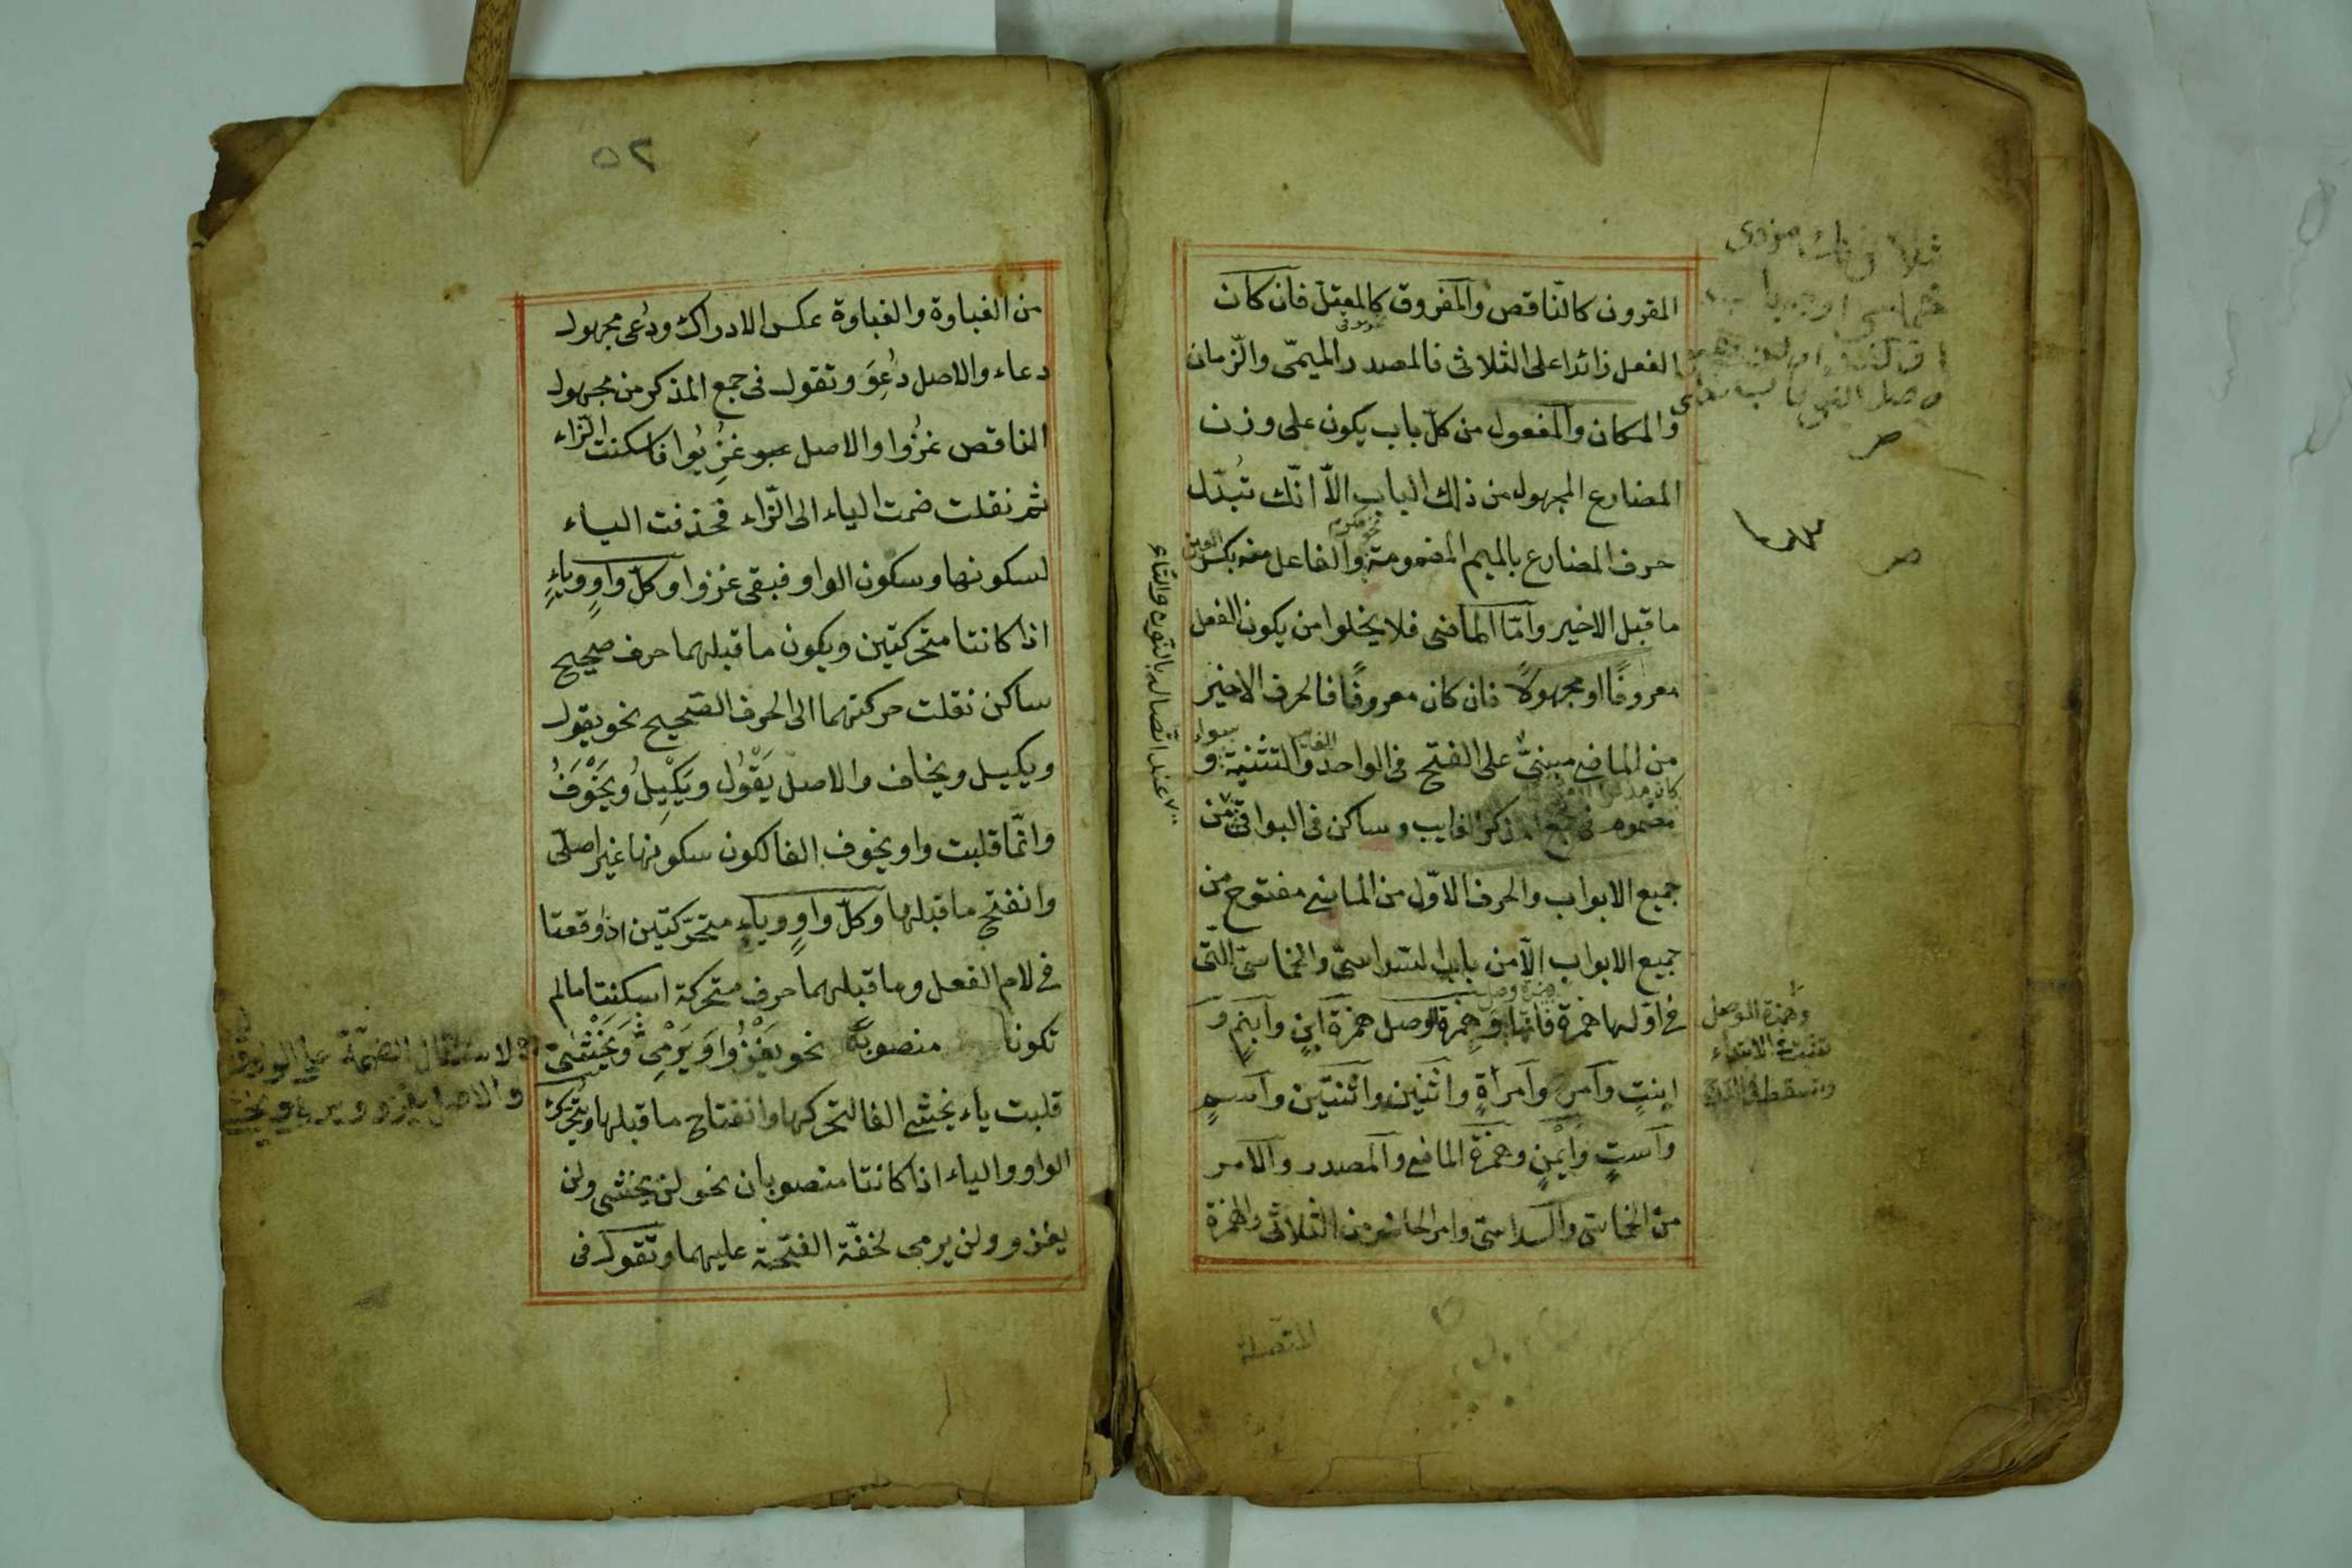 المقرون كالنّاقص والمفروق كالمعتلّ فان كان
الفعل زائدا على الثلاثى فالمصدر الميمىّ والزّمان
والمكان والمفعول من كلّ باب يكون على وزن
المضارع المجهول من ذلك الباب الاّ انّك تُبدّل
حرف المضارع بالميم المضمومة والفاعل منه بكسر العين
ما قبل الاخير وامّا الماضى فلا يخلوا من يكون الفعل
معروفًا او مجهولاً فان كان معروفًا فالحرف الاخير
من الماضى مبنىٌّ على الفتح فى الواحد والتثنية و
مضموم فى جمع المذكر الغايب وساكن فى البواقى من
جميع الابواب والحرف الاوّل من الماضى مفتوح من
جميع الابواب الاّ من باب السداسىّ والخماسىّ التّى
فى اوّلها همزة فانّها وهمزة الوصل همزة ابنٍ وابنمٍ و
ابنتٍ وامرءٍ وامرأةٍ واثنين واثنتين واسمٍ
واستٍ وايمنٍ وهمزة الماضى والمصدر والامر
من الخماسى والسداسى وامر الحاضر من الثلاثى والهمزة
عند اتّصاله بالنون والتاء
وهمزة الوصل
تثبت فى الابتداء
وتسقط فى الدرج
المتصلة
٥٢
من الغباوة والغباوة عكس الادراك ودُعى مجهول
دعاء والاصل دُعِوَ وتقول فى جمع المذكر من مجهول
الناقص غُزُوا والاصل غُزِيُوا فاسكنت الزّاء
ثم نقلت ضمت الياء الى الزّاء فحذفت الياء
لسكونها وسكون الواو فبقى غزوا وكلّ واوٍ وياءٍ
اذا كانتا متحركتين ويكون ما قبلهما حرف صحيح
ساكن نقلت حركتهما الى الحرف الصّحيح نحو يقول
ويكيل ويخاف والاصل يَقْوُل ويَكْيِلُ ويَخْوَفُ
وانّما قلبت واو يخوف الفا لكون سكونها غير اصلىّ
وانفتح ما قبلها وكلّ واوٍ وياءٍ متحرّكتين اذا وقعتا
فى لام الفعل وما قبلهما حرف متحركة اسكنتا ما لم
تكونا منصوبة نحو يَغْزُوا وَيَرْمِى وَيَخْشٰى
قلبت ياء يخشى الفا لتحركها وانفتاح ما قبلها ويتحرّك
الواو والياء اذا كانتا منصوبان نحو لن يخشى ولن
يغزو ولن يرمى لخفّة الفتحة عليهما وتقول فى
لاستثقال الضمّة على الواو
والاصل يغزو ويرمى ويخشى